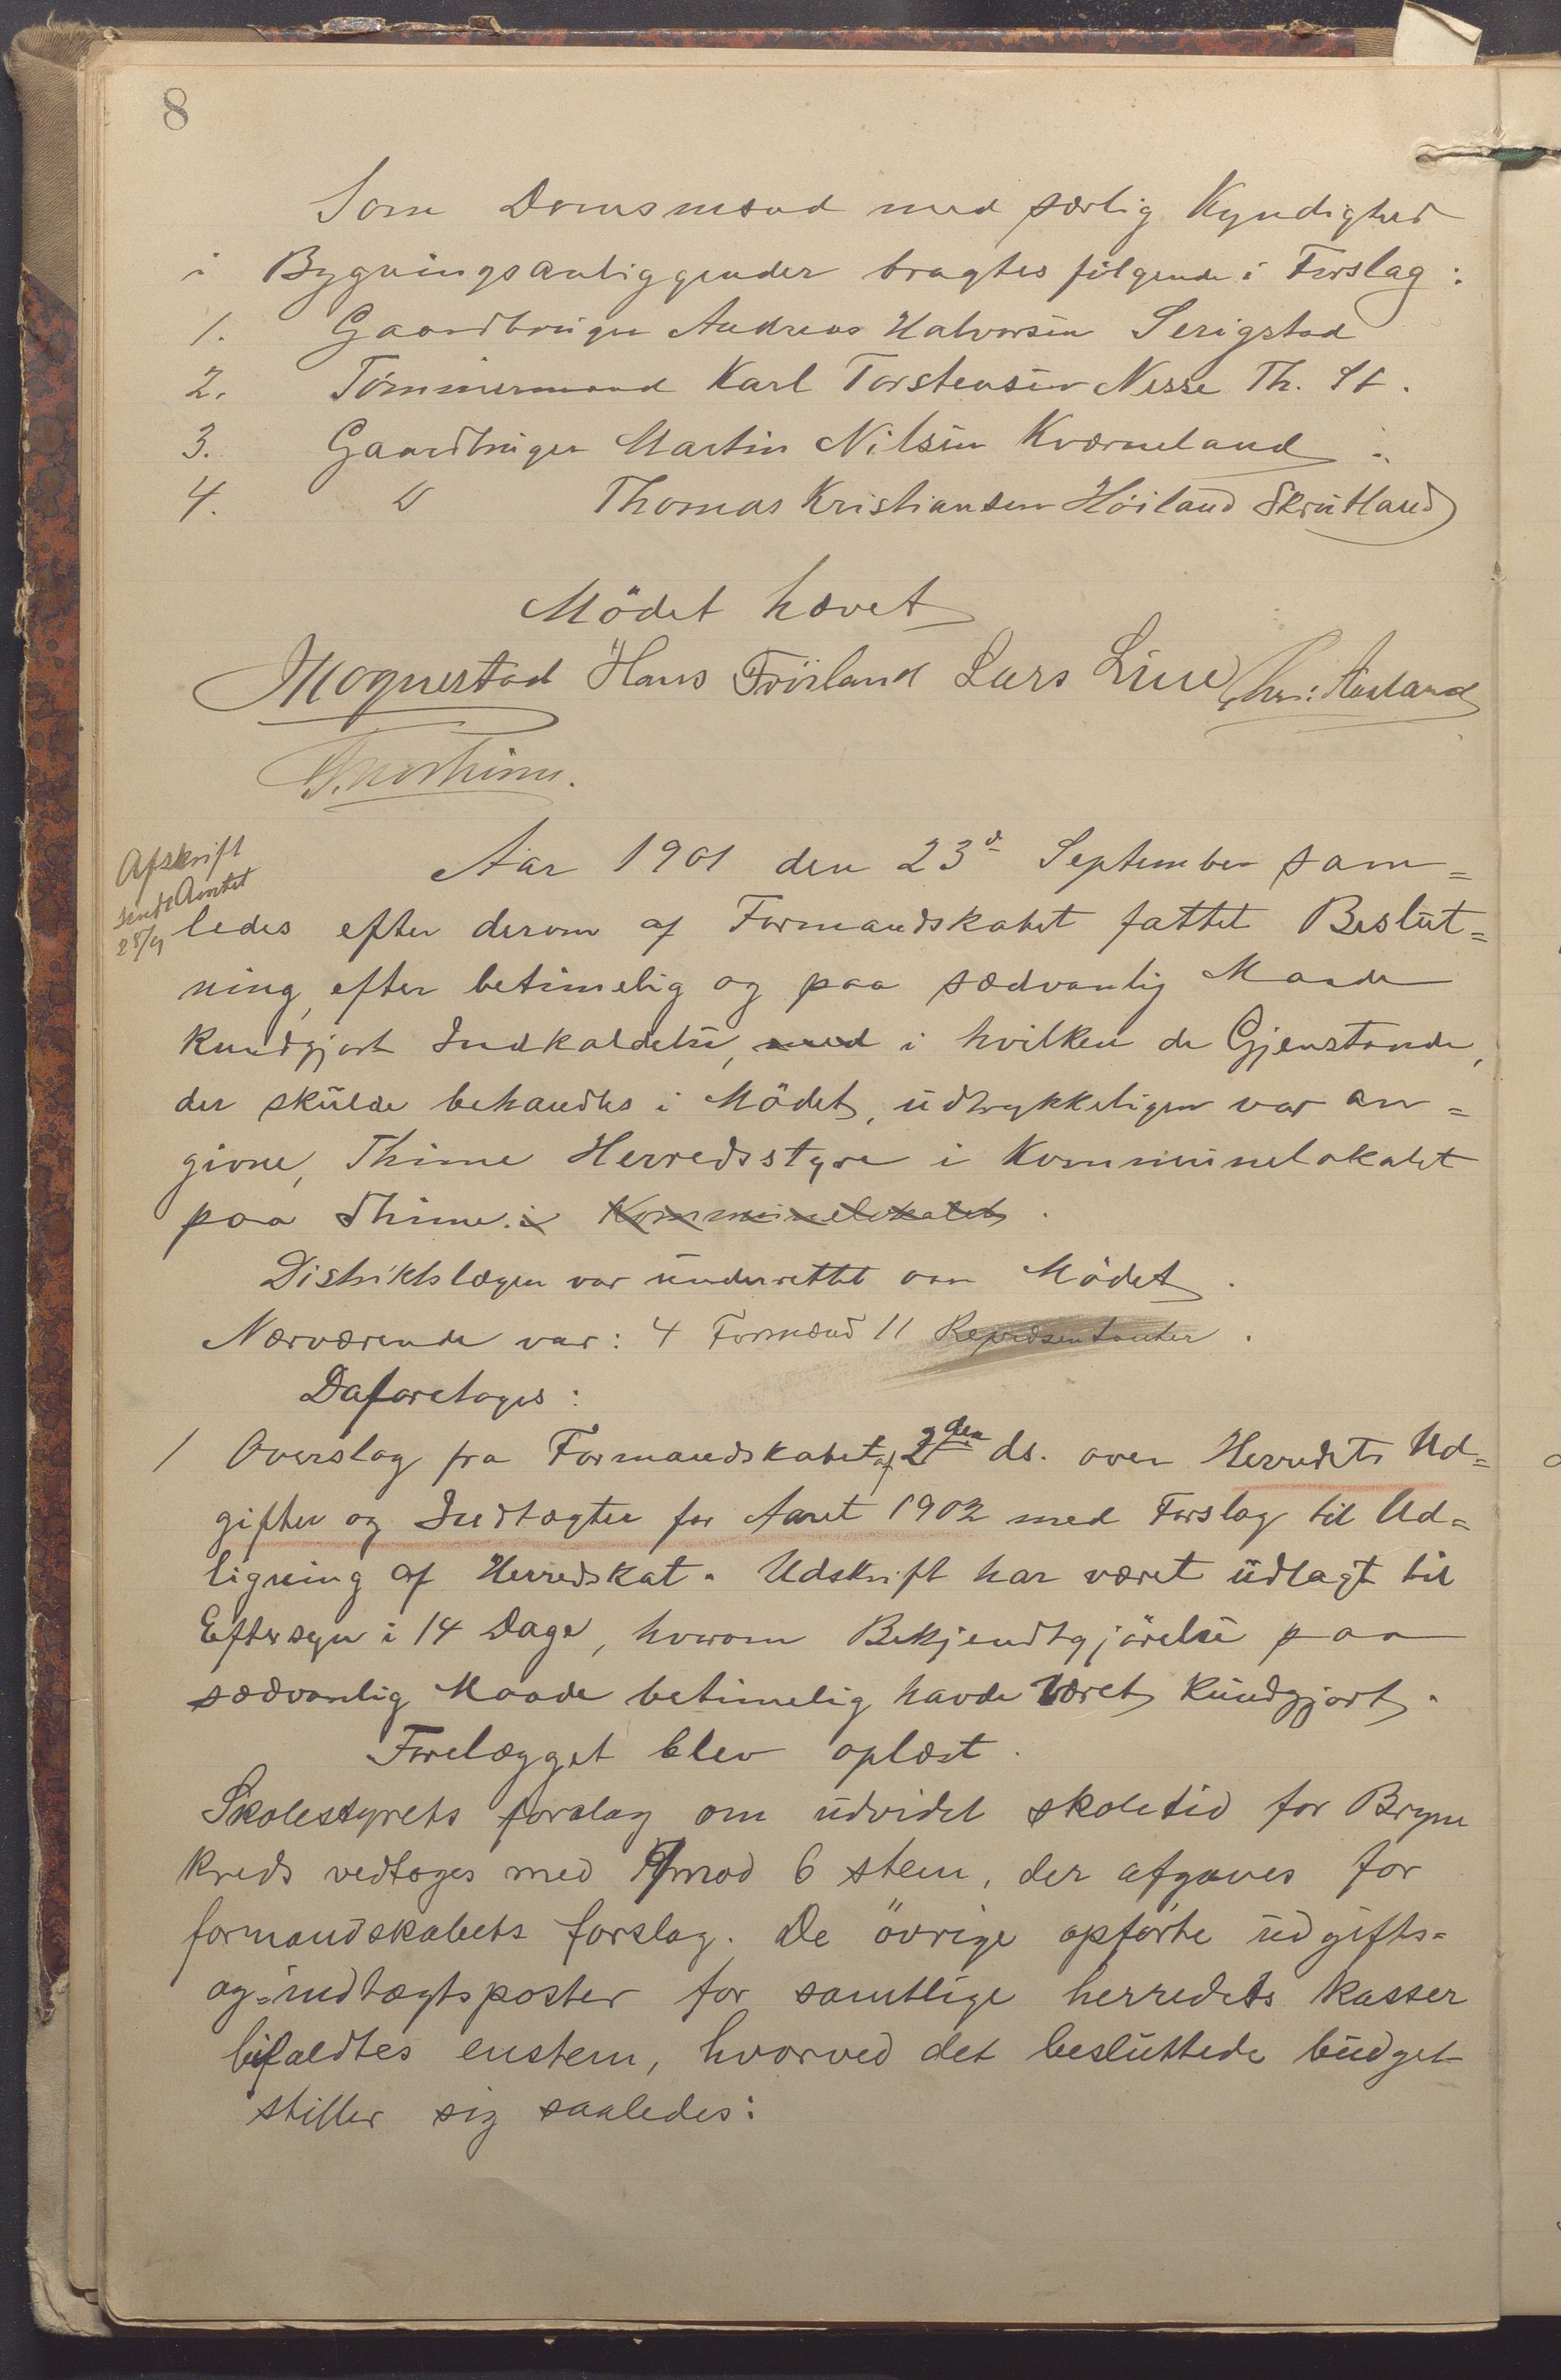 8
Som Domsmænd med særlig Kyndighed
i Bygningsanliggender bragtes følgende i Forslag:
1. Gaardbruger Andreas Halvorsen Serigstad
2. Tømmermand Karl Torstensen Nesse Th. St.
3. Gaardbruger Martin Nilsen Kværneland
4. D Thomas Kristiansen Höiland Skrutland
Mödet hævet
Mognestad Hans Fröiland Lars Line Chr: Aasland
Afskrift
sendt Amtet
28/9
Aar 1901 den 23d September sam=
ledes efter derom af Formandskabet fattet Beslut=
ning, efter betimelig og paa sædvanlig Maade
kundgjort Indkaldelse, med i hvilken de Gjenstande,
der skulde behandles i Mödet, udtrykkeligen var an=
givne, Thime Herredsstyre i Kommunelokalet
paa Thime. i Kommunelokalet.
Distriktslægen var underrettet om Mödet.
Nærværende var: 4 Formænd 11 Repræsentanter.
Da foretoges:
1 Overslag fra Formandskabet af 2den ds. over Herredets Ud=
gifter og Indtægter for Aaret 1902 med Forslag til Ud=
ligning af Herredskat. Udskrift har været udlagt til
Eftersyn i 14 Dage, hvorom Bekjendtgjörelse paa
sædvanlig Maade betimelig havde været kundgjort.
Forelægget blev oplæst.
Skolestyrets forslag om udvidet skoletid for Bryne
kreds vedtoges med 9 mod 6 stem, der afgaves for
formandskabets forslag. De övrige opførte udgifts=
og indtægtsposter for samtlige herredets kasser
bifaldtes enstem, hvorved det besluttede budget
stiller sig saaledes: